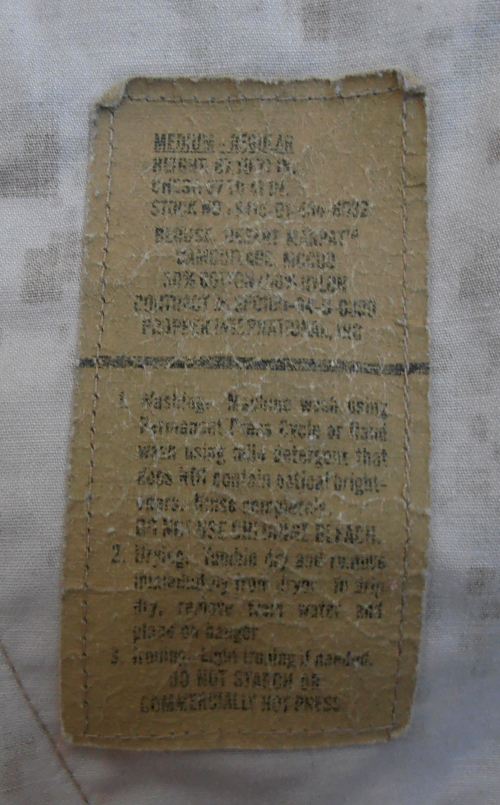 MEDIUM - REGULAR
HEIGHT 67 TO 71 IN.
CHEST 37 TO 41 IN.
STOCK NO.
BLOUSE, DESERT MARPAT
CAMOUFLAGE, MCCUU
50% COTTON / 50% NYLON
CONTRACT
PROPPER INTERNATIONAL, INC
1. Washing. Machine wash using
Permanent Press Cycle or Hand
wash using mild detergent that
does NOT contain optical bright-
eners. Rinse completely.
DO NOT USE CHLORINE BLEACH.
2. Drying. Tumble dry and remove
immediately from dryer. To drip
dry, remove from water and
place on hanger
3. Ironing. Light ironing if needed.
DO NOT STARCH OR
COMMERCIALLY HOT PRESS